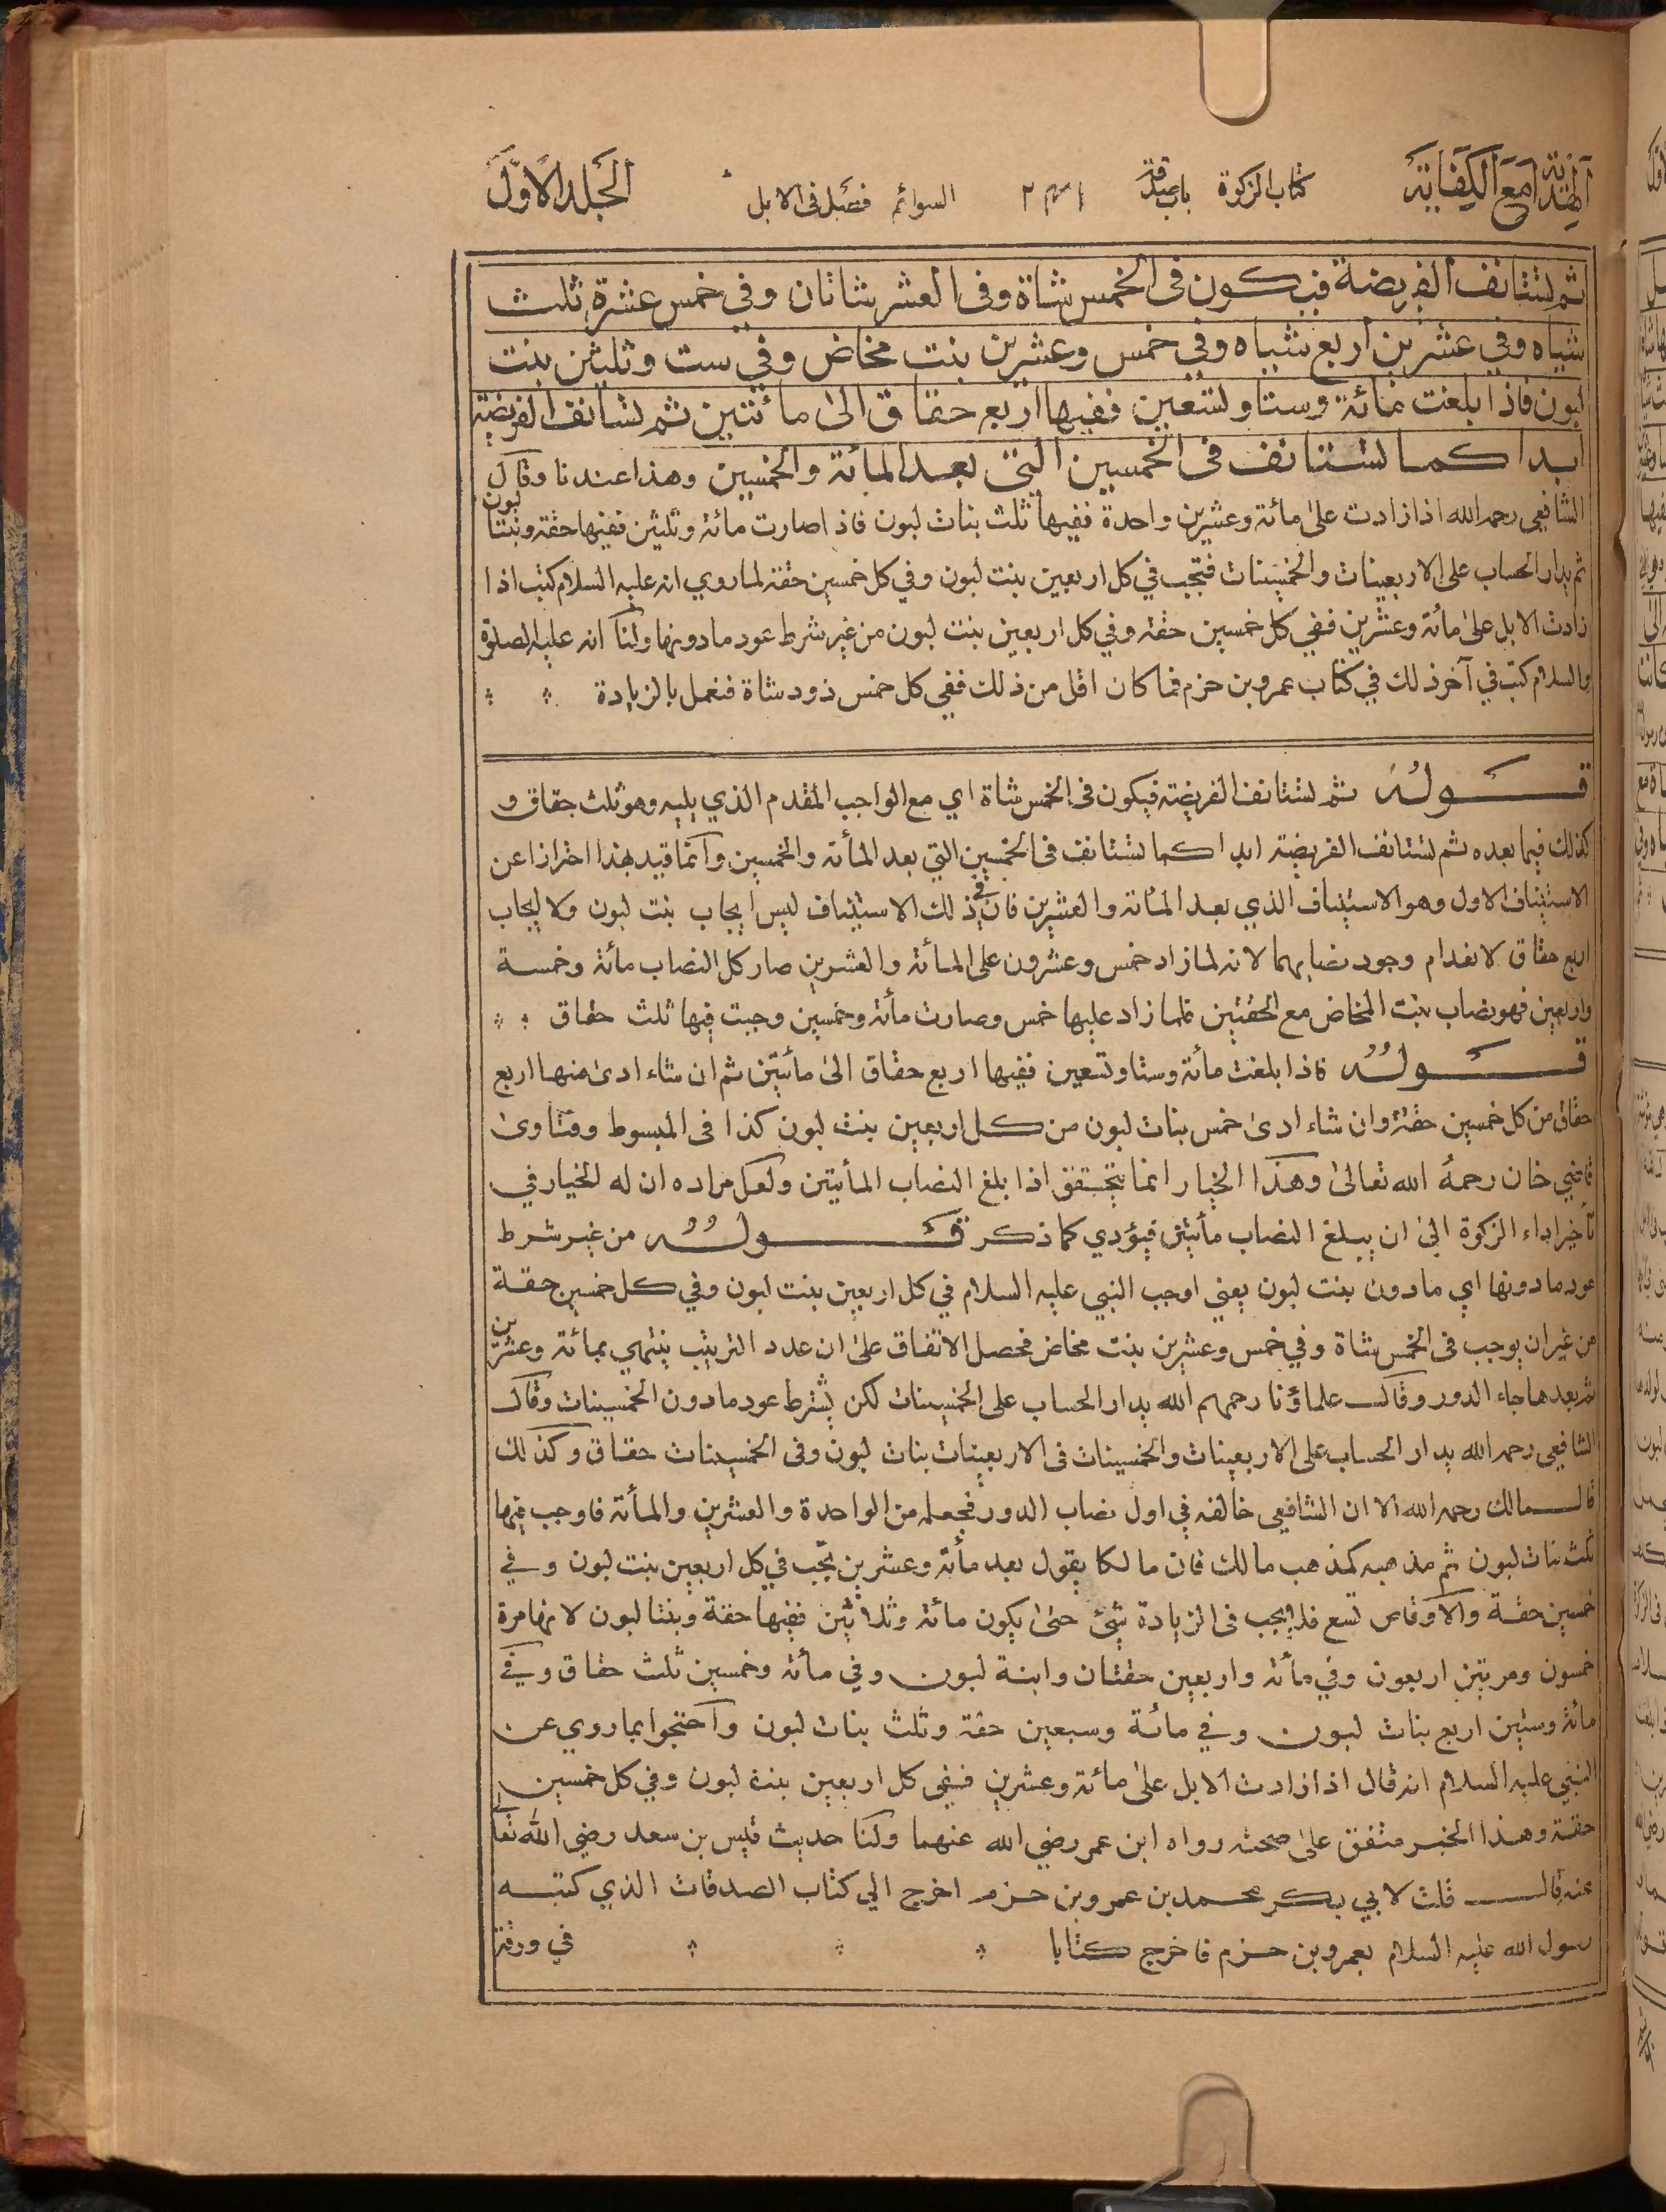 الهداية مع الكفاية كتاب الزكوة باب صدقة السوائم فصل في الابل الجلد الاول
ثم تستانف الفريضة فيكون في الخمس شاة وفي العشر شاتان وفي خمس عشرة ثلث
شياه وفي عشرين اربع شياه وفي خمس وعشرين بنت مخاض وفي ست وثلثين بنت
لبون فاذا بلغت مائة وستا وتسعين ففيها اربع حقاق الى مائتين ثم تستانف الفريضة
ابدا كما تستانف في الخمسين التي بعد المائة والخمسين وهذا عندنا وقال
الشافعي رحمه الله اذا زادت على مائة وعشرين واحدة ففيها ثلث بنات لبون فاذا صارت مائة وثلثين ففيها حقة وبنتا لبون
ثم يدار الحساب على الاربعينات والخمسينات فتجب في كل اربعين بنت لبون وفي كل خمسين حقة لما روي انه عليه السلام كتب اذا
زادت الابل على مائة وعشرين ففي كل خمسين حقة وفي كل اربعين بنت لبون من غير شرط عود ما دونها ولنا انه عليه الصلوة
والسلام كتب في آخر ذلك في كتاب عمرو بن حزم فما كان اقل من ذلك ففي كل خمس ذود شاة فنعمل بالزيادة
قوله ثم تستانف الفريضة فيكون في الخمس شاة اي مع الواجب المقدم الذي يليه وهو ثلث حقاق و
كذلك فيما بعده ثم تستانف الفريضة ابدا كما تستانف في الخمسين التي بعد المأئة والخمسين وانما قيد بهذا احترازا عن
الاستيناف الاول وهو الاستيناف الذي بعد المأئة والعشرين فان في ذلك الاستيناف ليس ايجاب بنت لبون ولا ايجاب
اربع حقاق لانعدام وجود نصابهما لانه لما زاد خمس وعشرون على المأئة والعشرين صار كل النصاب مائة وخمسة
واربعين فهو نصاب بنت المخاض مع الحقتين فلما زاد عليها خمس وصارت مأئة وخمسين وجبت فيها ثلث حقاق
قوله فاذا بلغت مأئة وستا وتسعين ففيها اربع حقاق الى مأئتين ثم ان شاء ادى منها اربع
حقاق من كل خمسين حقة وان شاء ادى خمس بنات لبون من كل اربعين بنت لبون كذا في المبسوط وفتاوى
قاضي خان رحمه الله تعالى وهذا الخيار انما يتحقق اذا بلغ النصاب المأيتين ولعل مراده ان له الخيار في
تأخير اداء الزكوة الى ان يبلغ النصاب مأيتين فيؤدي كما ذكر قوله من غير شرط
عود ما دونها اي ما دون بنت لبون يعني اوجب النبي عليه السلام في كل اربعين بنت لبون وفي كل خمسين حقة
من غير ان يوجب في الخمس شاة وفي خمس وعشرين بنت مخاض فحصل الاتفاق على ان عدد الترتيب ينتهي بمائة وعشرين
ثم بعدها جاء الدور وقال علماؤنا رحمهم الله يدار الحساب على الخمسينات لكن بشرط عود ما دون الخمسينات وقال
الشافعي رحمه الله يدار الحساب على الاربعينات والخمسينات في الاربعينات بنات لبون وفي الخمسينات حقاق وكذلك
قال مالك رحمه الله الا ان الشافعي خالفه في اول نصاب الدور فجعله من الواحدة والعشرين والمأئة فاوجب فيها
ثلث بنات لبون ثم مذهبه كمذهب مالك فان مالكا يقول بعد مأئة وعشرين تجب في كل اربعين بنت لبون وفي
خمسين حقة والاوقاص تسع فلا يجب في الزيادة شئ حتى يكون مائة وثلاثين ففيها حقة وبنتا لبون لانها مرة
خمسون ومرتين اربعون وفي مأئة واربعين حقتان وابنة لبون وفي مأئة وخمسين ثلث حقاق وفي
مائة وستين اربع بنات لبون وفي مائة وسبعين حقة وثلث بنات لبون واحتجوا بما روي عن
النبي عليه السلام انه قال اذا زادت الابل على مائة وعشرين ففي كل اربعين بنت لبون وفي كل خمسين
حقة وهذا الخبر متفق على صحته رواه ابن عمر رضي الله عنهما ولنا حديث قيس بن سعد رضي الله تعالى
عنه قال قلت لابي بكر محمد بن عمرو بن حزم اخرج الي كتاب الصدقات الذي كتبه
رسول الله عليه السلام بعمرو بن حزم فاخرج كتابا في ورقة